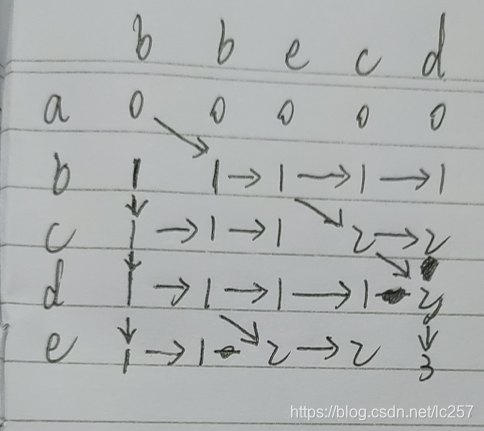 b b e c d
a 0 0 0 0 0
b 1 1 → 1 → 1 → 1
c 1 → 1 → 1 2 → 2
d 1 → 1 → 1 → 1
e 1 → 1 2 → 2 3
https://blog.csdn.net/lc257